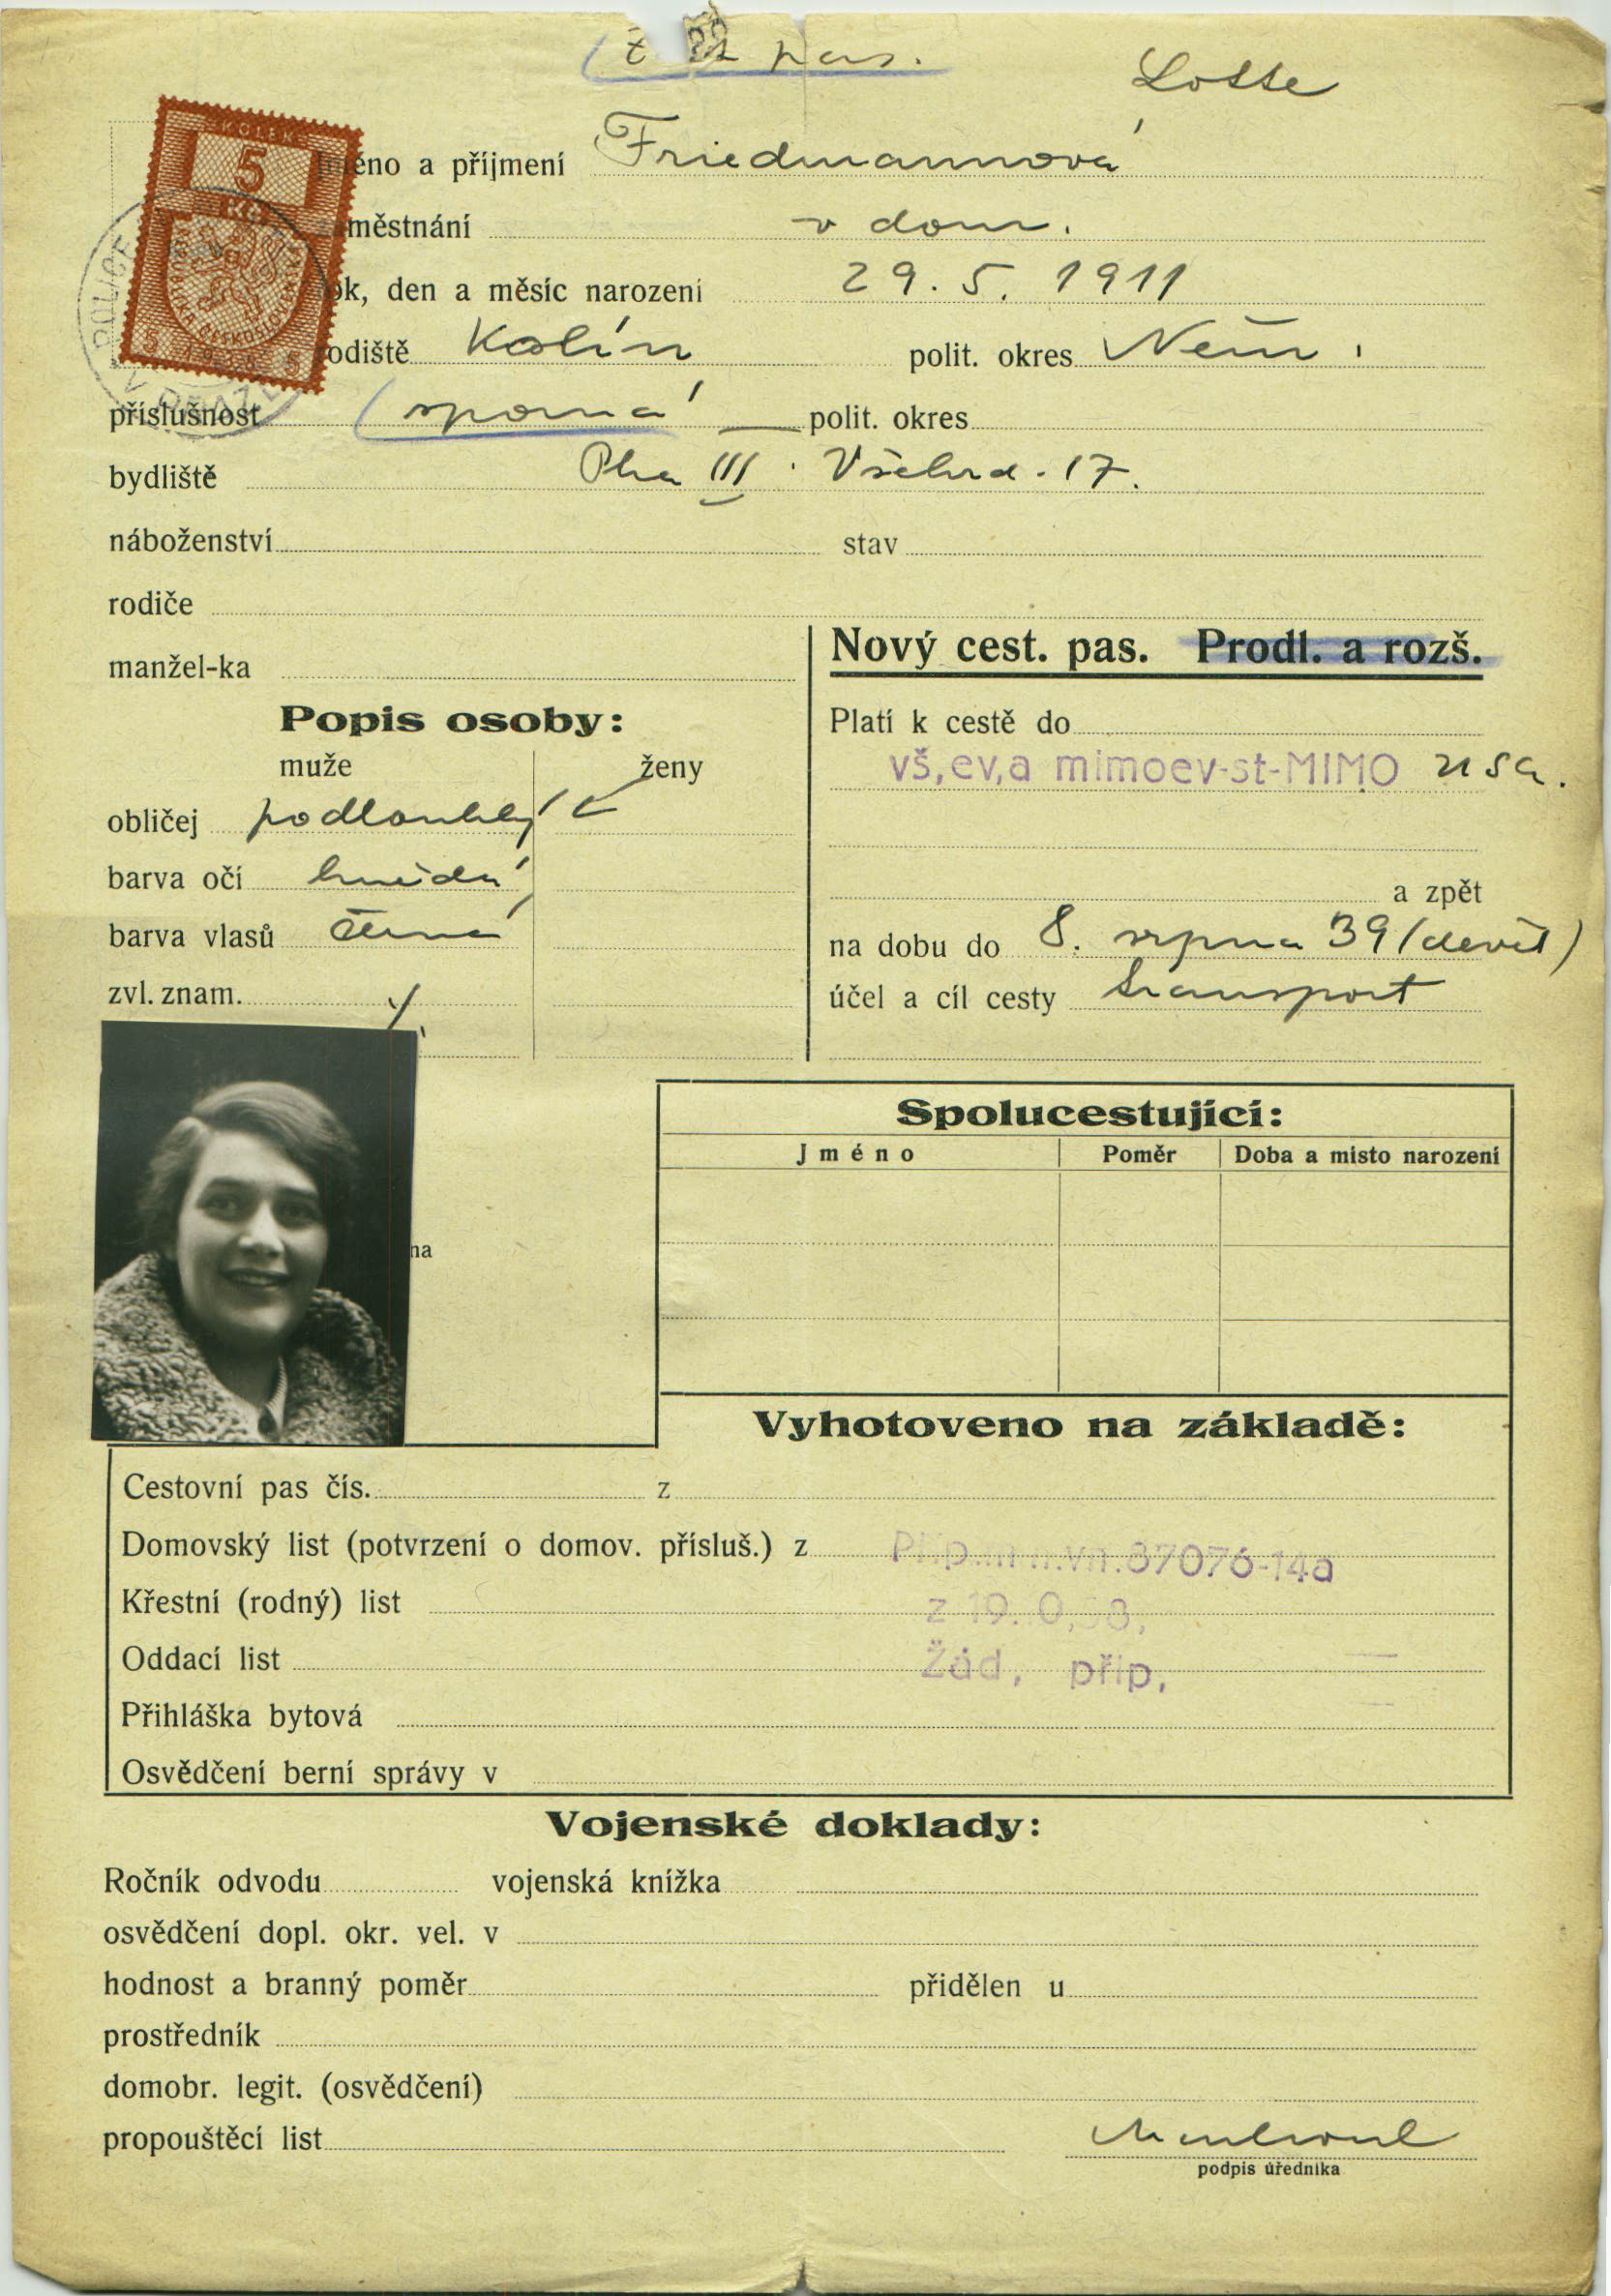 pas.
Lotte
Jméno a příjmení Friedmannová
zaměstnání v dom.
rok, den a měsíc narození 29. 5. 1911
rodiště Kolín polit. okres Něm.
příslušnost sporná — polit. okres
bydliště Pha III. Všehrd. 17.
náboženství stav
rodiče
manžel-ka
Nový cest. pas. Prodl. a rozš.
Popis osoby:
muže ženy
obličej podlouhlý
barva očí hnědá
barva vlasů černá
zvl. znam.
Platí k cestě do
vš,ev,a mimoev-st-MIMO USA.
a zpět
na dobu do 8. srpna 39 (devět)
účel a cíl cesty transport
na
Spolucestující:
Jméno Poměr Doba a místo narození
Vyhotoveno na základě:
Cestovní pas čís. z
Domovský list (potvrzení o domov. přísluš.) z 37076-14a
Křestní (rodný) list z 19.
Oddací list Žád, přip,
Přihláška bytová
Osvědčení berní správy v
Vojenské doklady:
Ročník odvodu vojenská knížka
osvědčení dopl. okr. vel. v
hodnost a branný poměr přidělen u
prostředník
domobr. legit. (osvědčení)
propouštěcí list
podpis úředníka
KOLEK
5
Kč
5 5
POLICE
V PRAZE